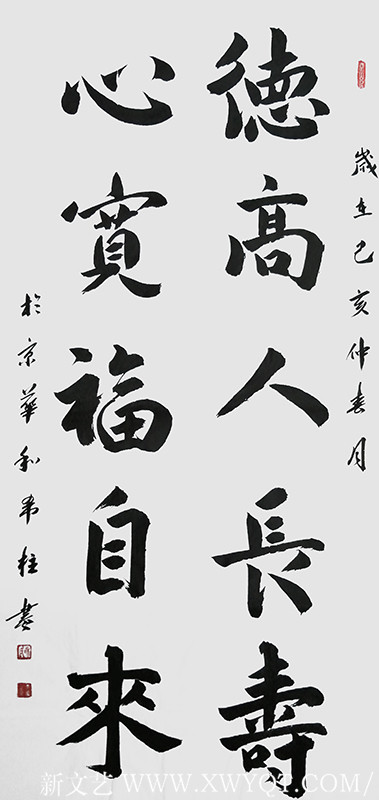 歲在己亥仲春月
德高人長壽
心寬福自來
於京華和柱書
新文艺 WWW.XWYQT.COM/